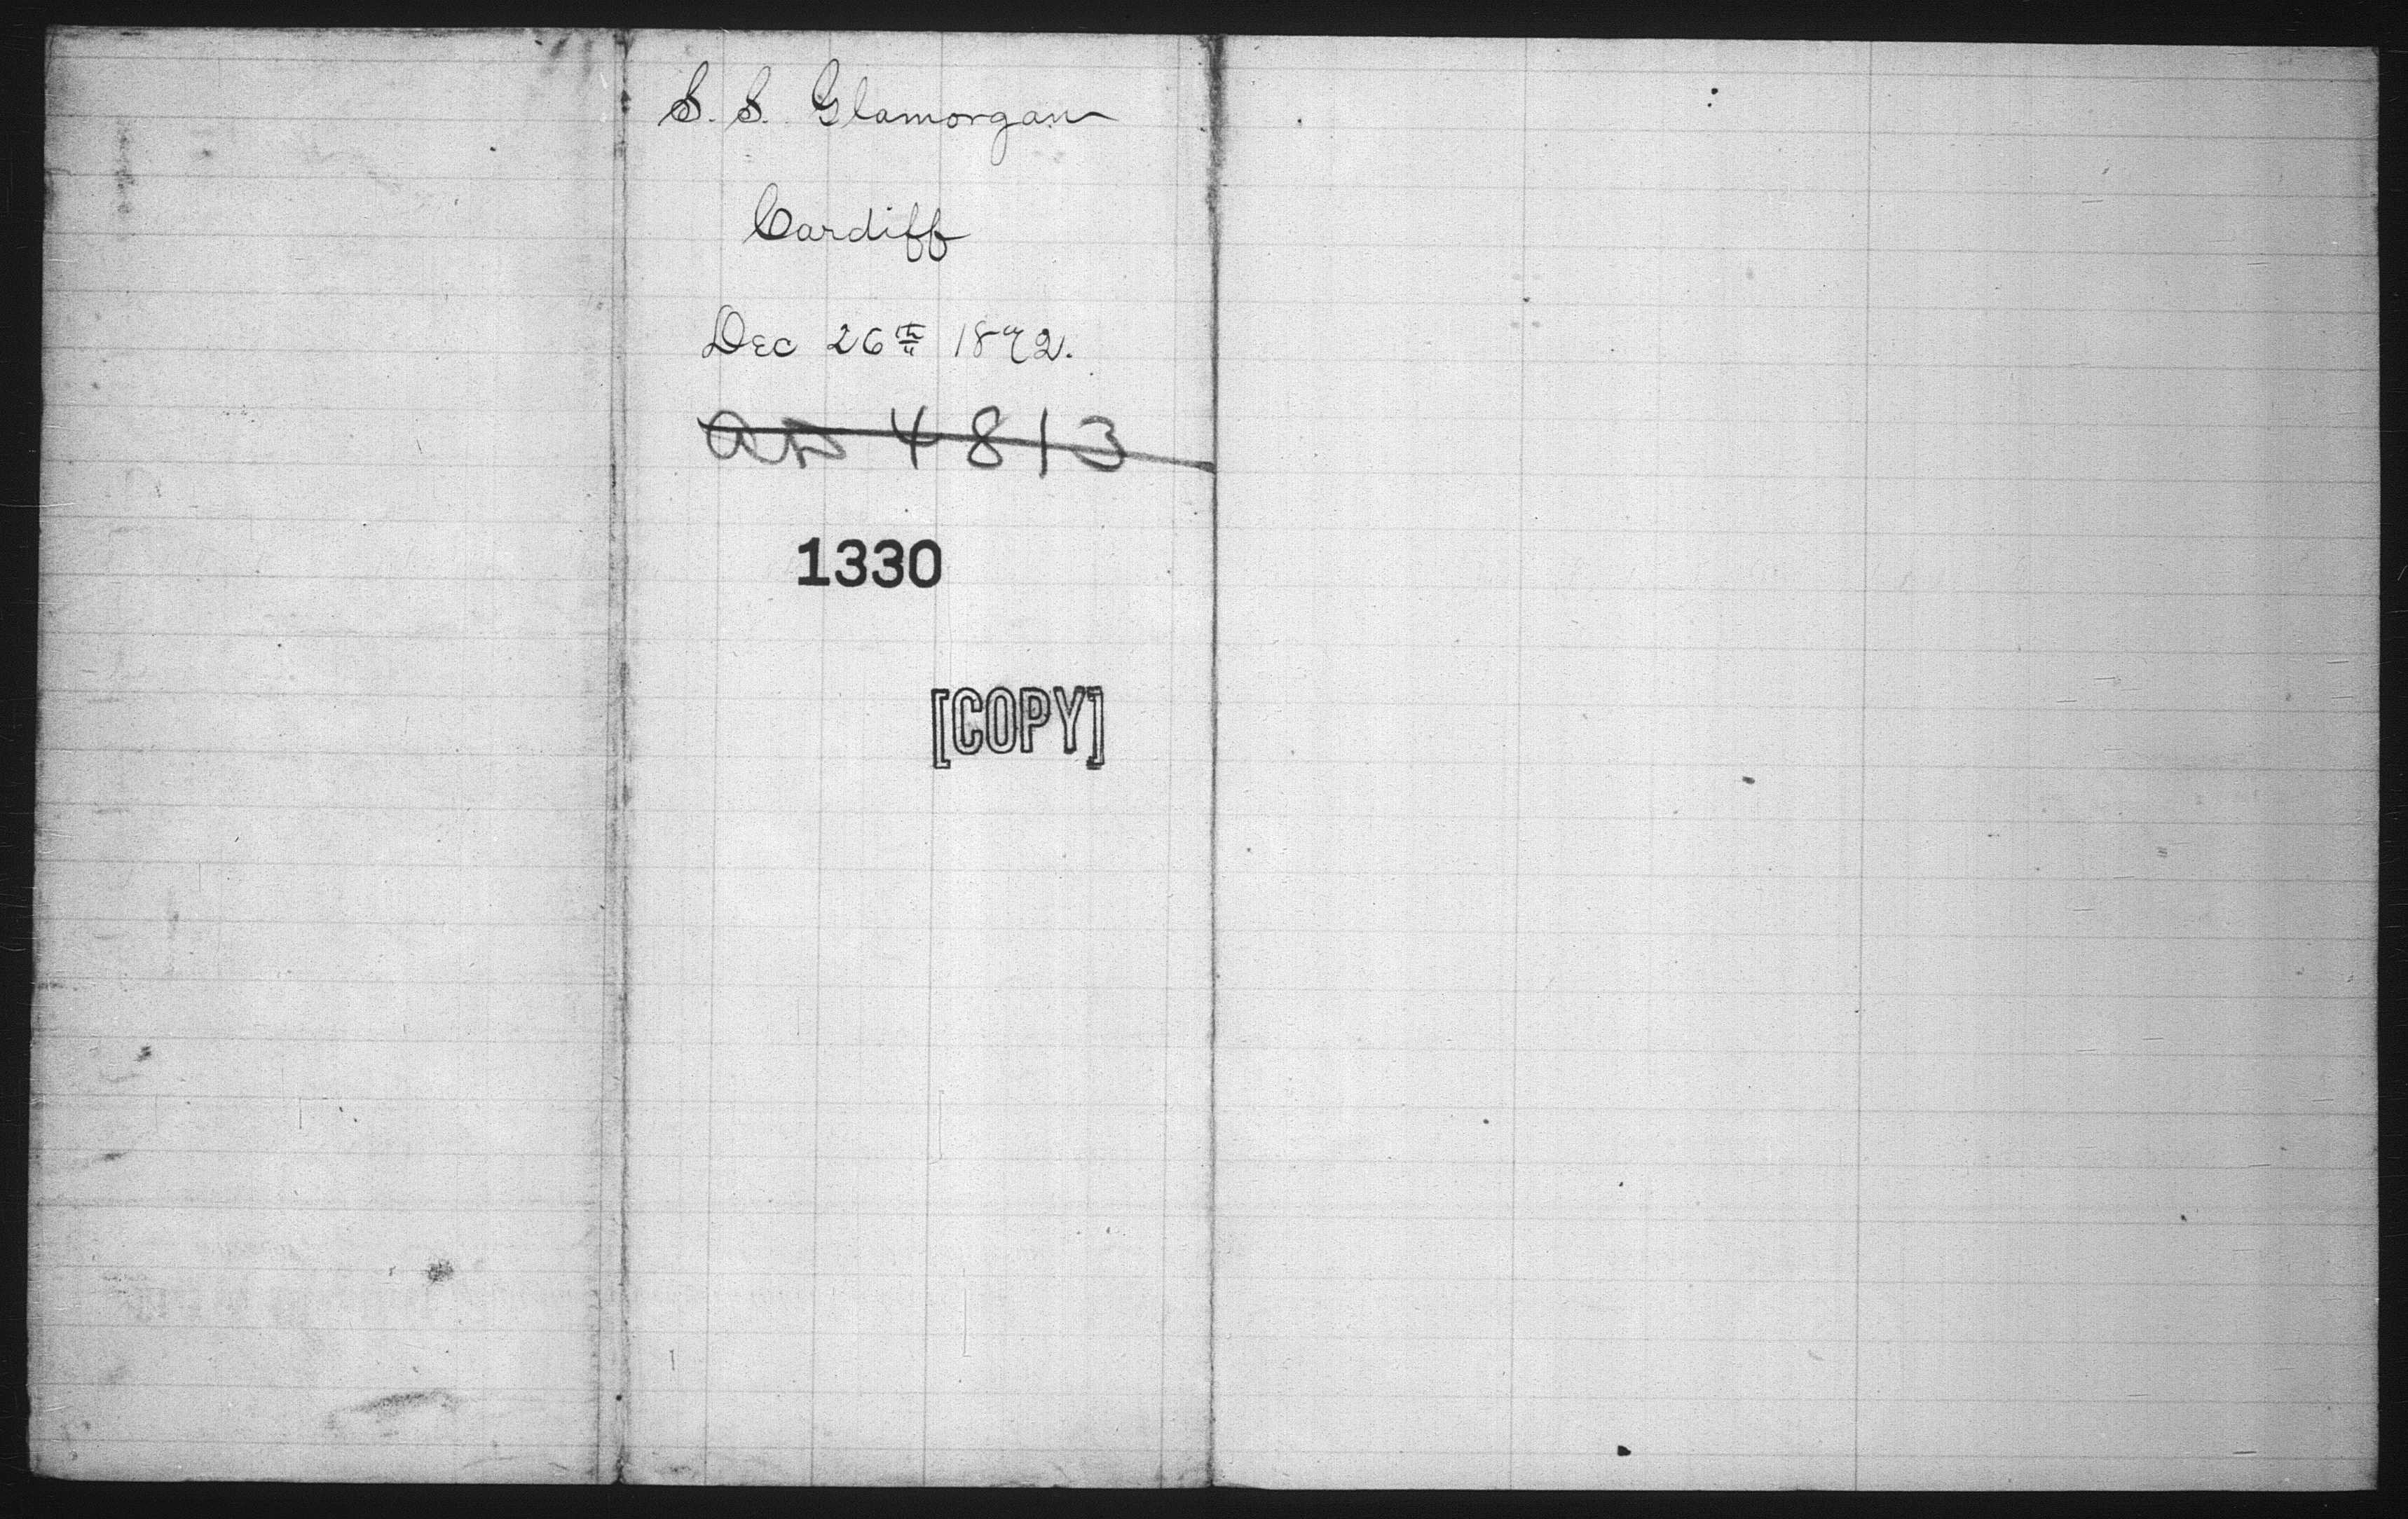 S. S. Glamorgan
Cardiff
Dec 26th 1872.
4813
1330
[COPY]